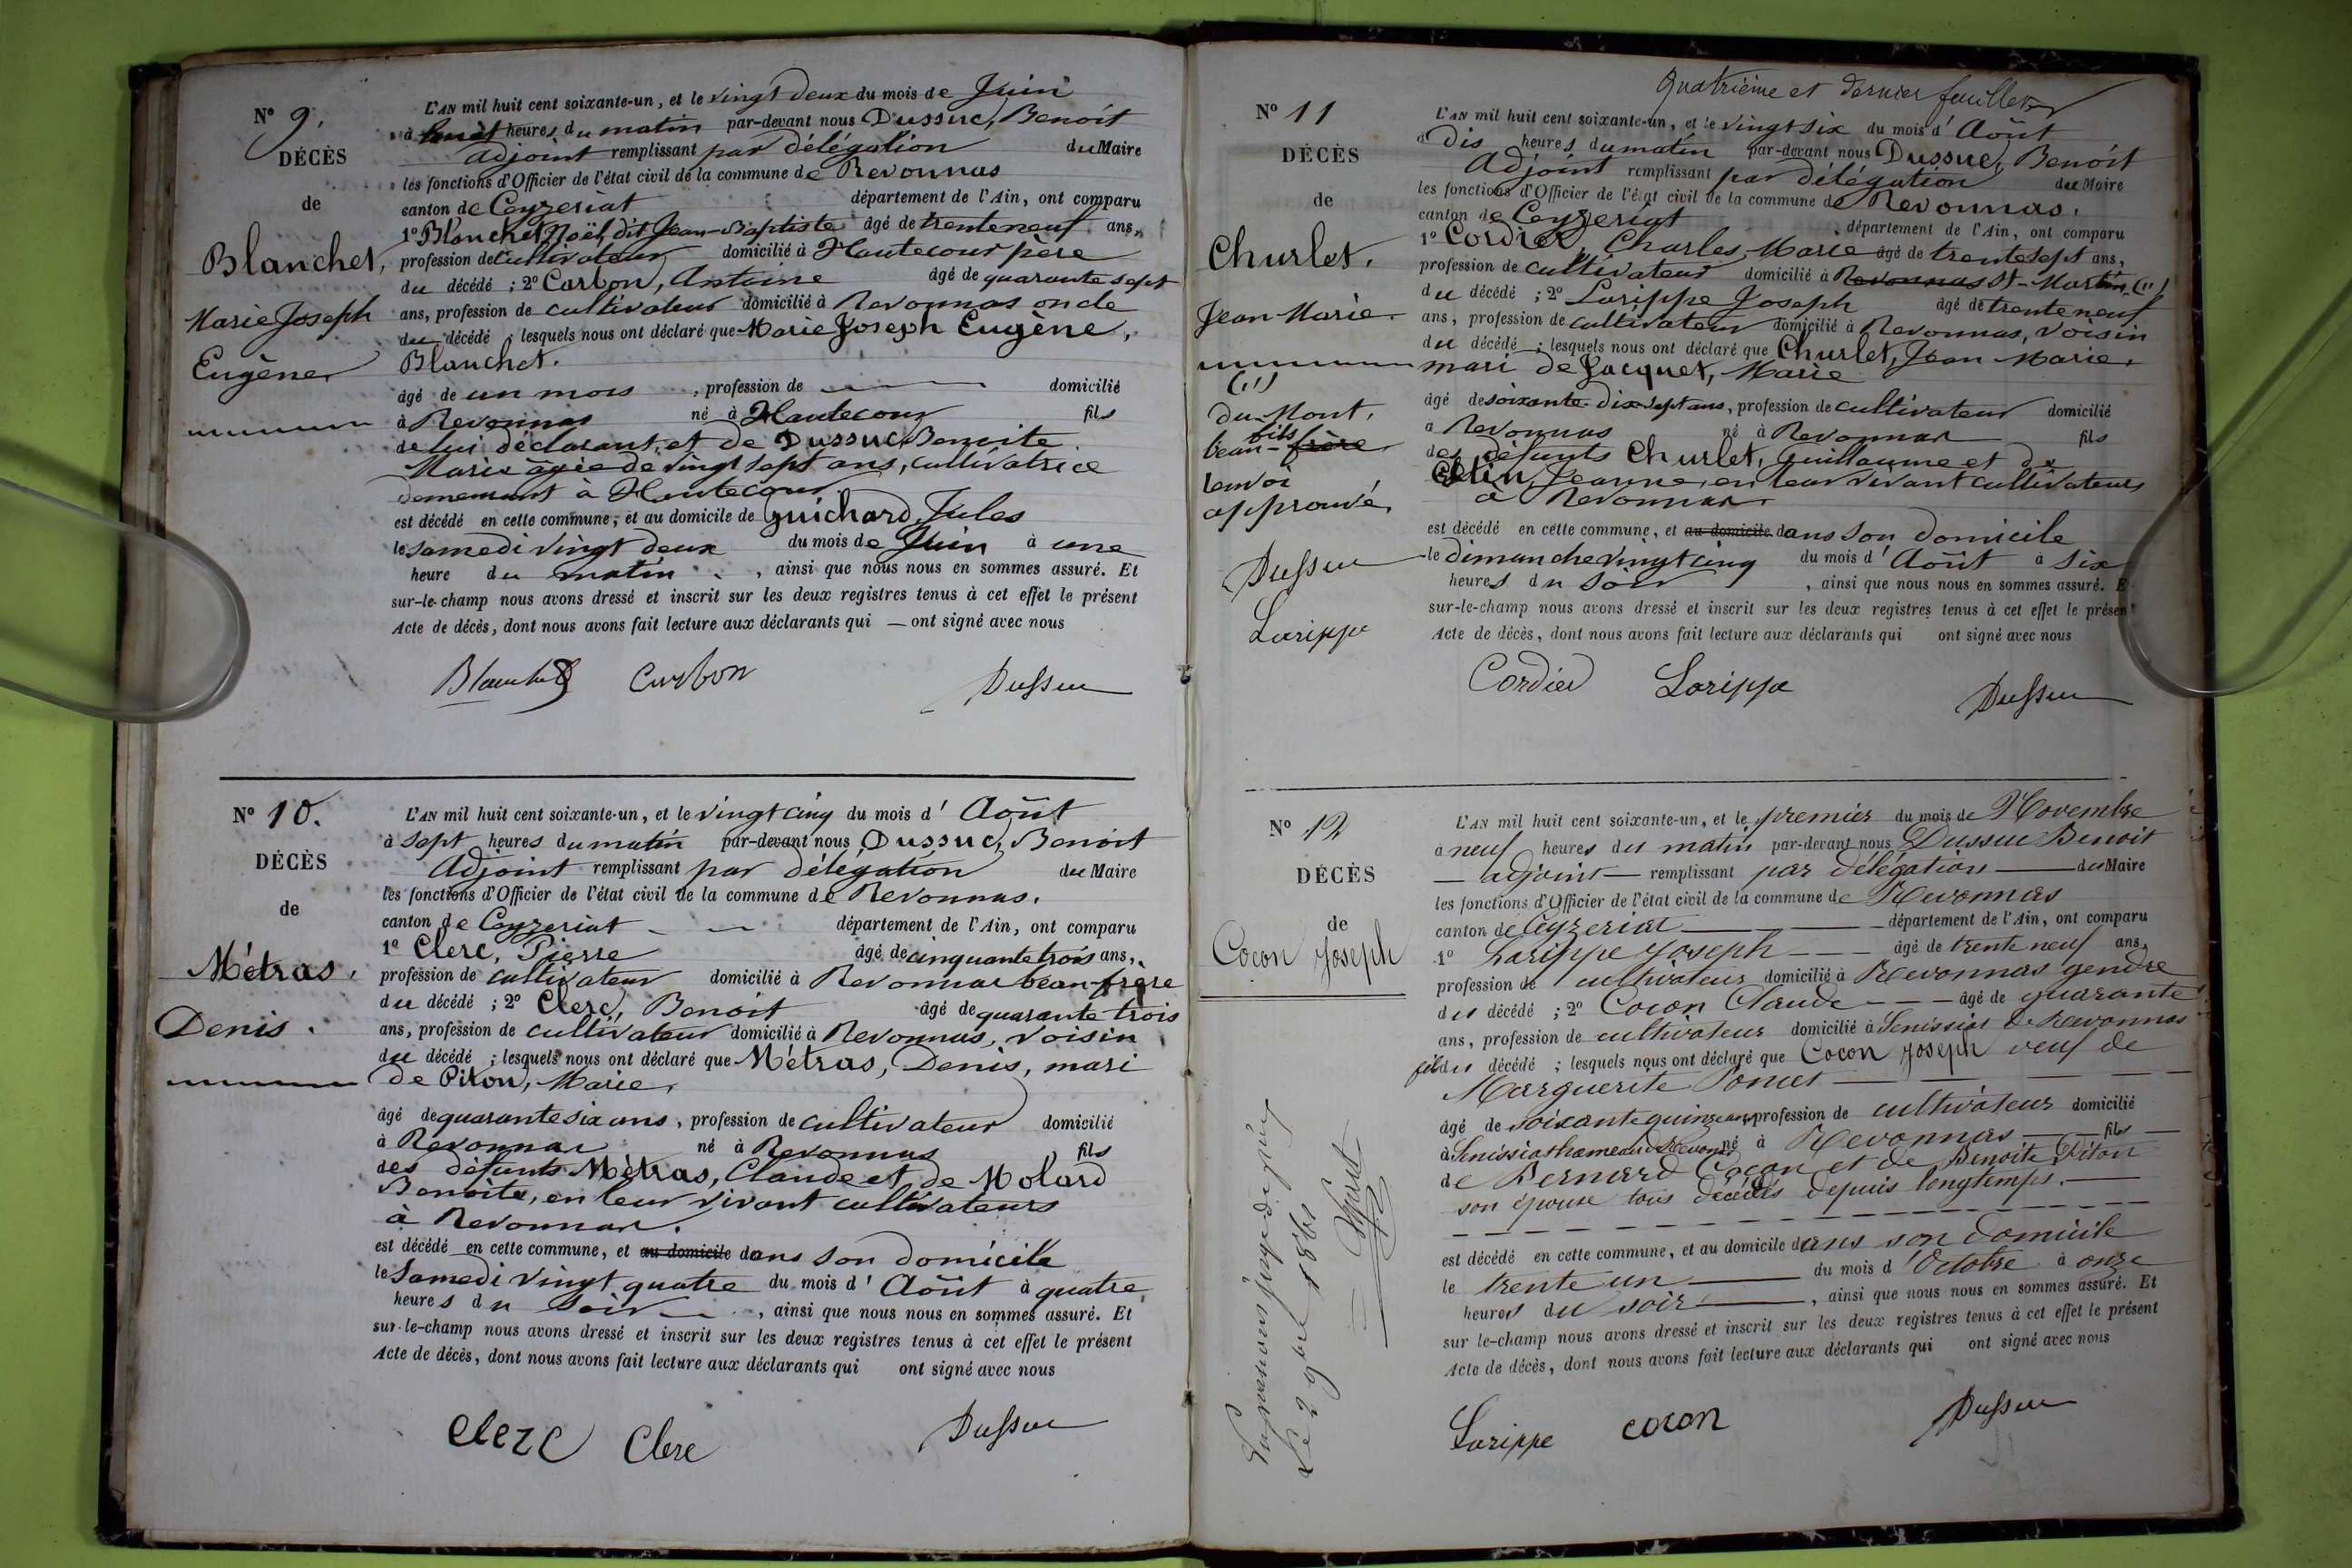 N° 9.
DÉCÈS
de
Blanchet,
Marie Joseph
Eugène
L'AN mil huit cent soixante-un, et le vingt deux du mois de Juin
à heures du matin par-devant nous Dussuc, Benoit
adjoint remplissant par délégation du Maire
les fonctions d'Officier de l'état civil de la commune de Revonnas
canton de Ceyzeriat département de l'Ain, ont comparu
1° Blanchet Noël, dit Jean-Baptiste âgé de trente neuf ans,
profession de cultivateur domicilié à Hautecour père
du décédé ; 2° Carbon, Antoine âgé de quarante sept
ans, profession de cultivateur domicilié à Revonnas oncle
du décédé ; lesquels nous ont déclaré que Marie Joseph Eugène,
Blanchet.
âgé de un mois , profession de domicilié
à Revonnas né à Hautecour fils
de lui déclarant, et de Dussuc, Benoite
Marie âgée de vingt sept ans, cultivatrice
demeurant à Hautecour
est décédé en cette commune, et au domicile de Guichard, Jules
le samedi vingt deux du mois de Juin à une
heure du matin , ainsi que nous nous en sommes assuré. Et
sur-le-champ nous avons dressé et inscrit sur les deux registres tenus à cet effet le présent
Acte de décès, dont nous avons fait lecture aux déclarants qui — ont signé avec nous
Blanchet Carbon Dussuc
N° 10.
DÉCÈS
de
Métras,
Denis.
L'AN mil huit cent soixante-un, et le vingt cinq du mois d' Août
à sept heures du matin par-devant nous Dussuc, Benoit
Adjoint remplissant par délégation du Maire
les fonctions d'Officier de l'état civil de la commune de Revonnas.
canton de Ceyzeriat département de l'Ain, ont comparu
1° Clerc, Pierre âgé de cinquante trois ans,
profession de cultivateur domicilié à Revonnas beau-frère
du décédé ; 2° Clerc, Benoit âgé de quarante trois
ans, profession de cultivateur domicilié à Revonnas, voisin
du décédé ; lesquels nous ont déclaré que Métras, Denis, mari
de Piton, Marie,
âgé de quarante six ans, profession de cultivateur domicilié
à Revonnas né à Revonnas fils
des défunts Métras, Claude et de Molard
Benoite, en leur vivant cultivateurs
à Revonnas.
est décédé en cette commune, et au domicile dans son domicile
le Samedi vingt quatre du mois d' Août à quatre
heures du soir , ainsi que nous nous en sommes assuré. Et
sur-le-champ nous avons dressé et inscrit sur les deux registres tenus à cet effet le présent
Acte de décès, dont nous avons fait lecture aux déclarants qui ont signé avec nous
Clerc Clerc Dussuc
Quatrième et dernier feuillet
N° 11
DÉCÈS
de
Churlet,
Jean Marie
(")
du-Mont,
beau-frère fils
renvoi
approuvé,
Dussuc
Larippe
L'AN mil huit cent soixante-un, et le vingt six du mois d' Août
à dis heures du matin par-devant nous Dussuc, Benoit
Adjoint remplissant par délégation du Maire
les fonctions d'Officier de l'état civil de la commune de Revonnas.
canton de Ceyzeriat département de l'Ain, ont comparu
1° Cordier, Charles, Marie âgé de trente sept ans,
profession de cultivateur domicilié à Revonnas St-Martin (")
du décédé ; 2° Larippe Joseph âgé de trente neuf
ans, profession de cultivateur domicilié à Revonnas, voisin
du décédé ; lesquels nous ont déclaré que Churlet, Jean Marie,
mari de Jacquet, Marie
âgé de soixante dix-sept ans, profession de cultivateur domicilié
à Revonnas né à Revonnas fils
des défunts Churlet, Guillaume et de
Jeanne, en leur vivant cultivateurs
à Revonnas
est décédé en cette commune, et au domicile dans son domicile
le dimanche vingt cinq du mois d' Août à six
heures du soir , ainsi que nous nous en sommes assuré. E
sur-le-champ nous avons dressé et inscrit sur les deux registres tenus à cet effet le présent
Acte de décès, dont nous avons fait lecture aux déclarants qui ont signé avec nous
Cordier Larippe Dussuc
N° 12
DÉCÈS
de
Cocon Joseph
L'AN mil huit cent soixante-un, et le premier du mois de Novembre
à neuf heures du matin par-devant nous Dussuc Benoit
— adjoint — remplissant par délégation — du Maire
les fonctions d'Officier de l'état civil de la commune de Revonnas
canton de Ceyzeriat — département de l'Ain, ont comparu
1° Larippe Joseph — âgé de trente neuf ans,
profession de cultivateur domicilié à Revonnas gendre
du décédé ; 2° Cocon Claude — âgé de quarante
ans, profession de cultivateur domicilié à Senissiat de Revonnas
fils du décédé ; lesquels nous ont déclaré que Cocon Joseph veuf de
Marguerite
âgé de soixante quinze ans, profession de cultivateur domicilié
à Senissiat hameau de Revonnas né à Revonnas — fils —
de Bernard Cocon et de Benoite Piton
son épouse tous décédés depuis longtemps. —
est décédé en cette commune, et au domicile dans son domicile
le trente un — du mois d' Octobre à onze
heures du soir —, ainsi que nous nous en sommes assuré. Et
sur le-champ nous avons dressé et inscrit sur les deux registres tenus à cet effet le présent
Acte de décès, dont nous avons fait lecture aux déclarants qui ont signé avec nous
Larippe cocon Dussuc
Vu par nous juge de paix
Le 2 9bre 1861